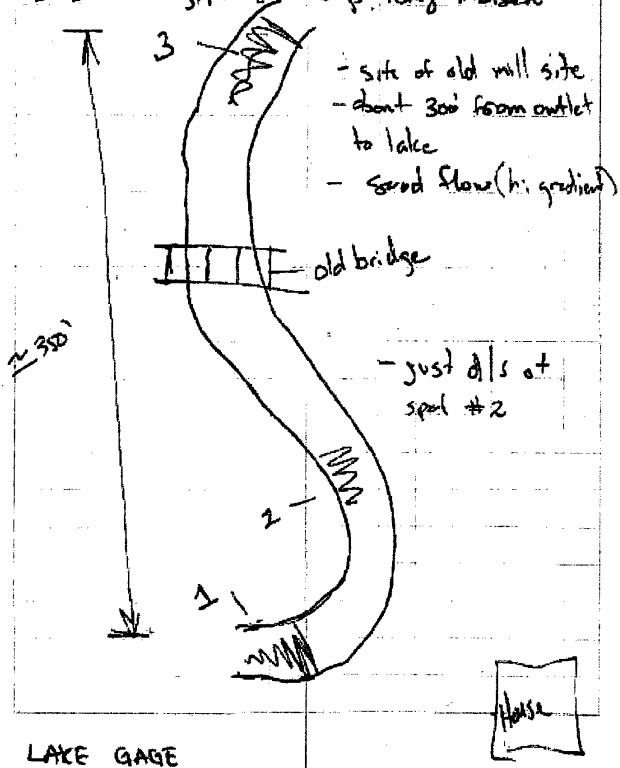 3
- site of old mill site
- about 300' from outlet
to lake
- good flow (hi gradient)
old bridge
~ 350'
- just d/s of
spot #2
2
1
House
LAKE GAGE